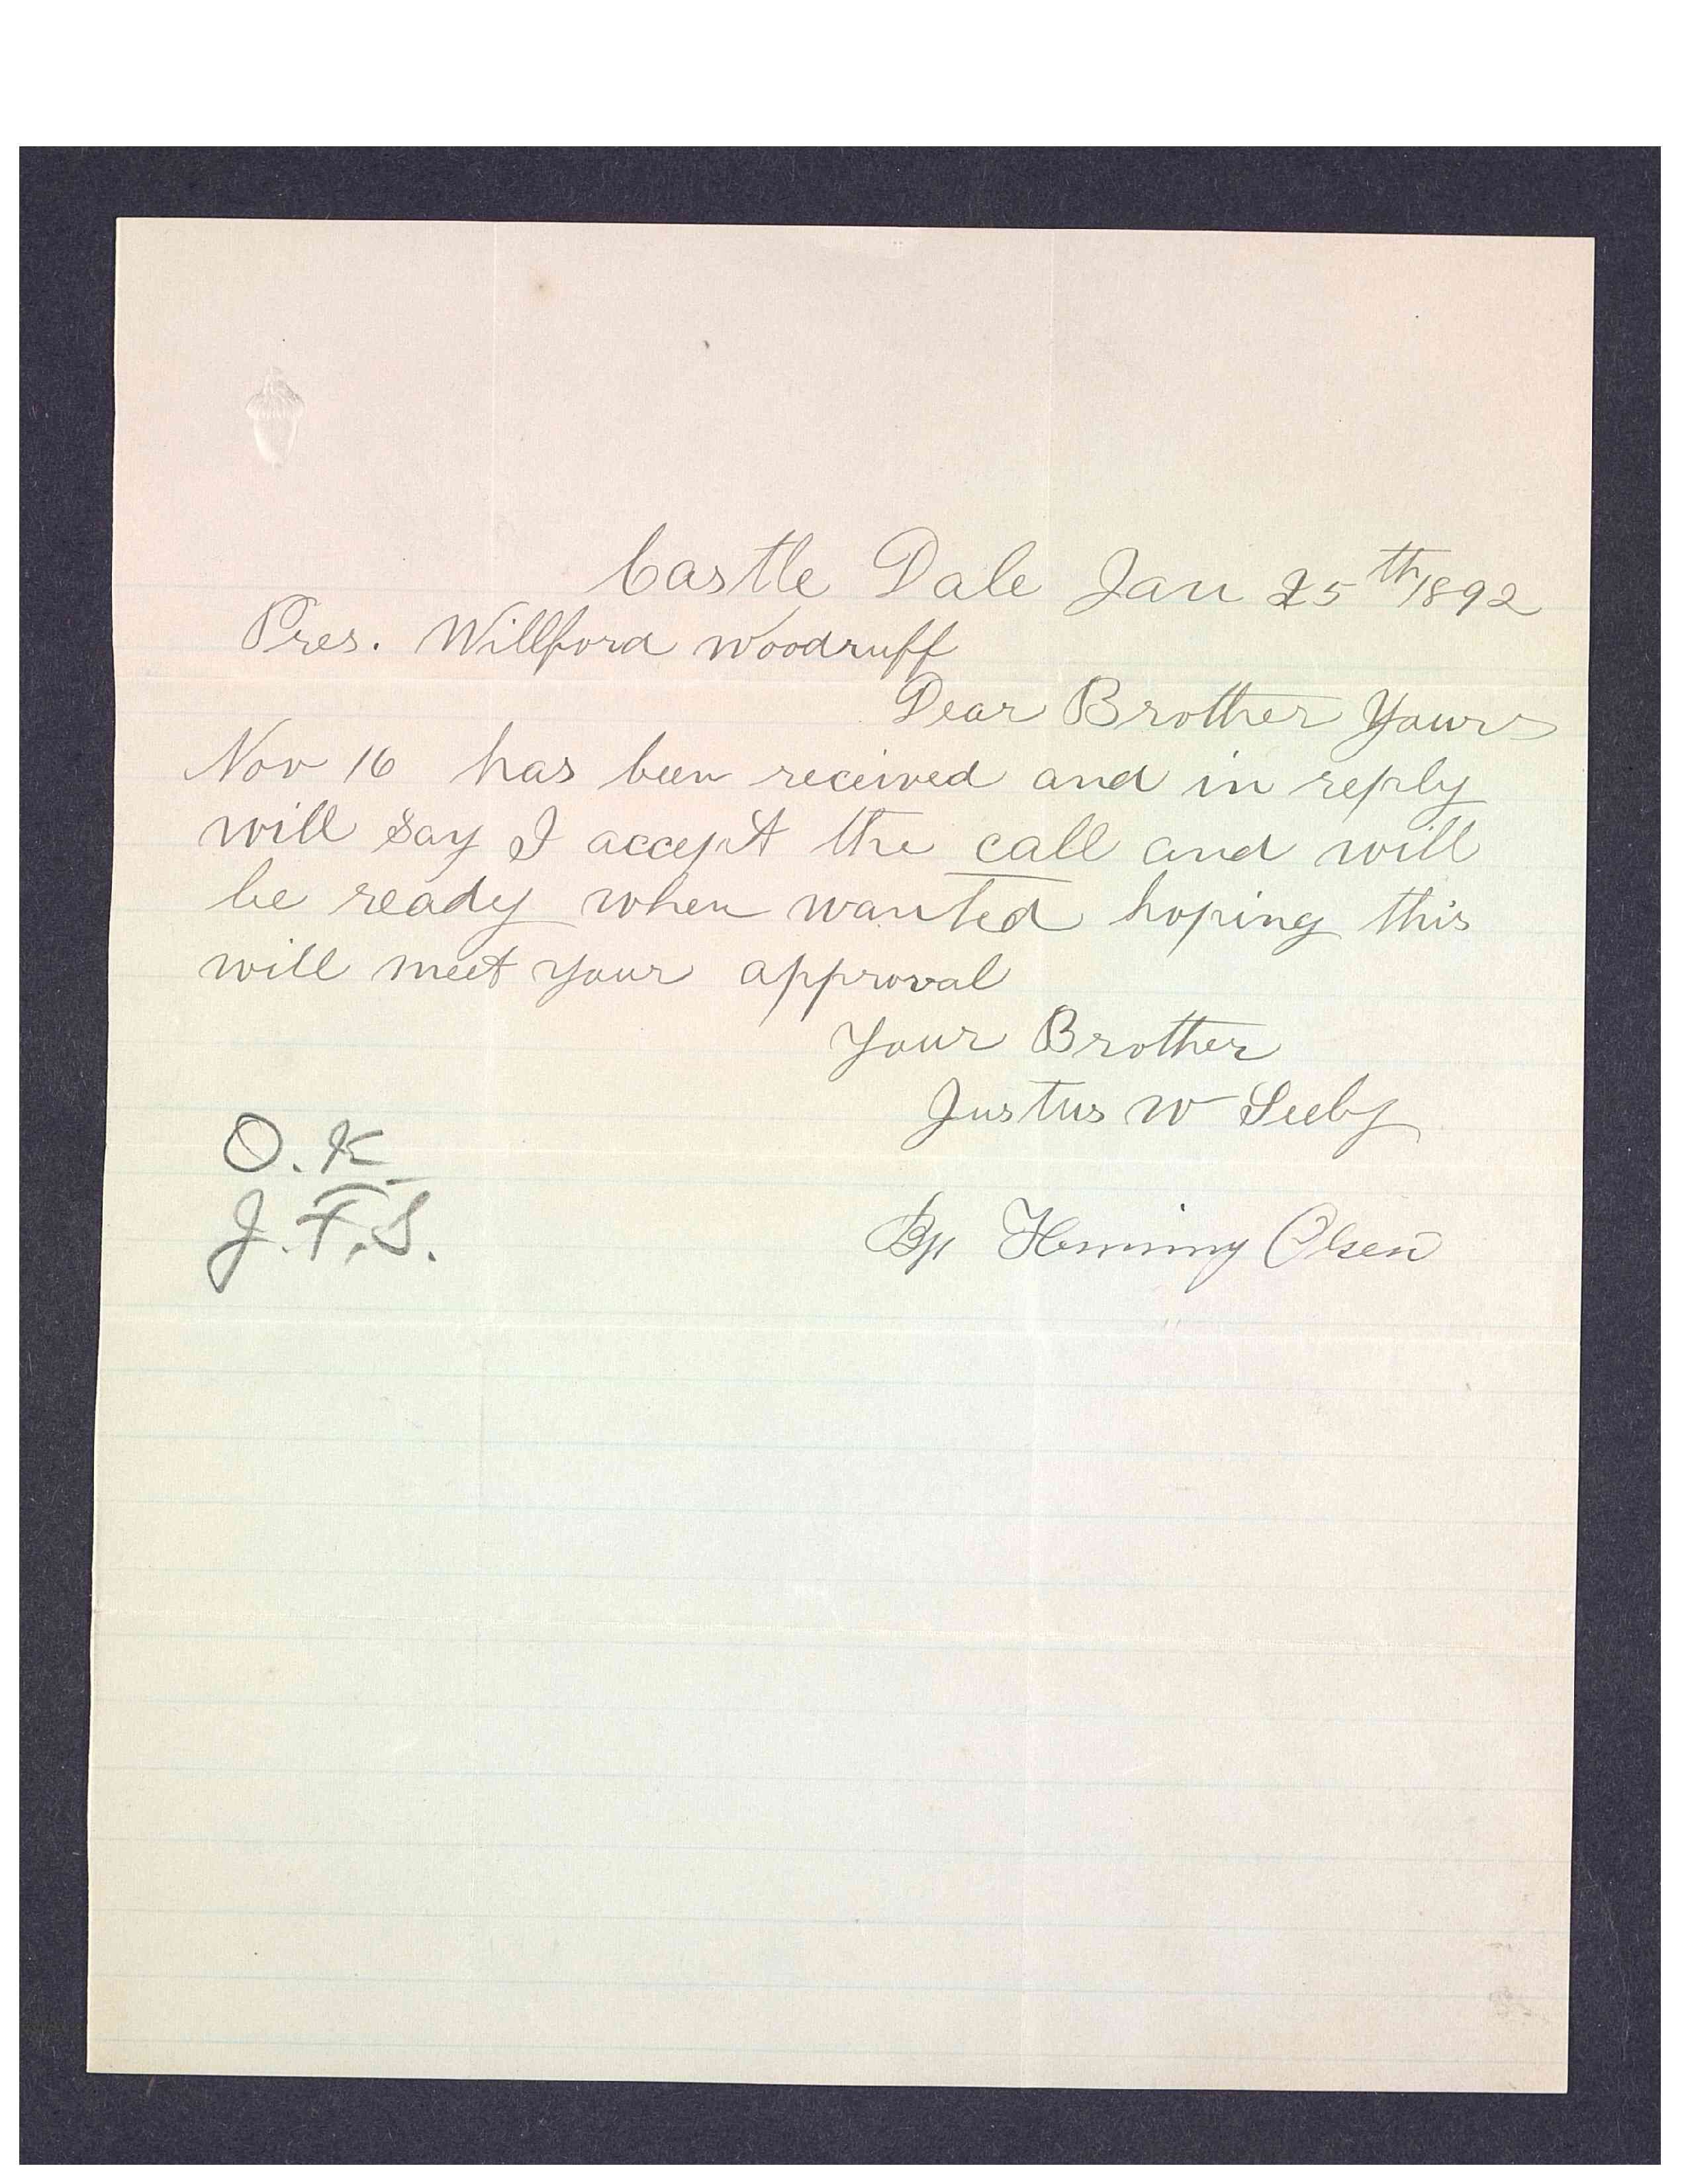 Castle Dale Jan 25th 1892
Pres. Willford Woodruff
Dear Brother Yours
Nov 16 has been received and in reply
will say I accept the call and will
be ready when wanted hoping this
will meet your approval
Your Brother
Justus W Seely
O.K
J.F.S.
Bp Henning Olsen